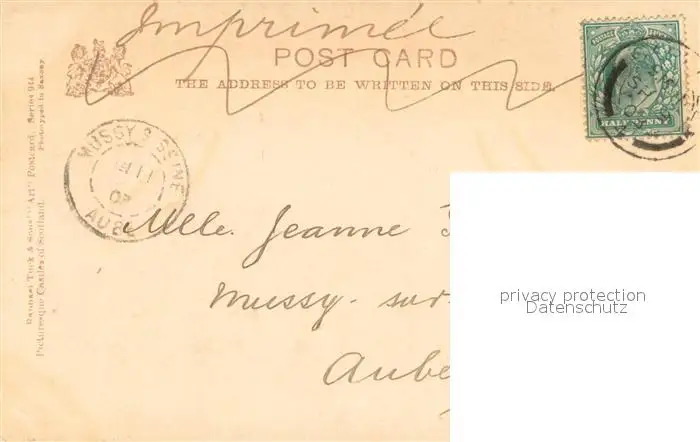 Imprimée
POST CARD
THE ADDRESS TO BE WRITTEN ON THIS SIDE.
HALFPENNY
MUSSY S SEINE
11
02
AUBE
Raphael Tuck & Sons' "Art" Postcard. Series 914
Picturesque Castles of Scotland. Photographed in Saxony
Mlle. Jeanne
Mussy-sur-
Aube
privacy protection
Datenschutz